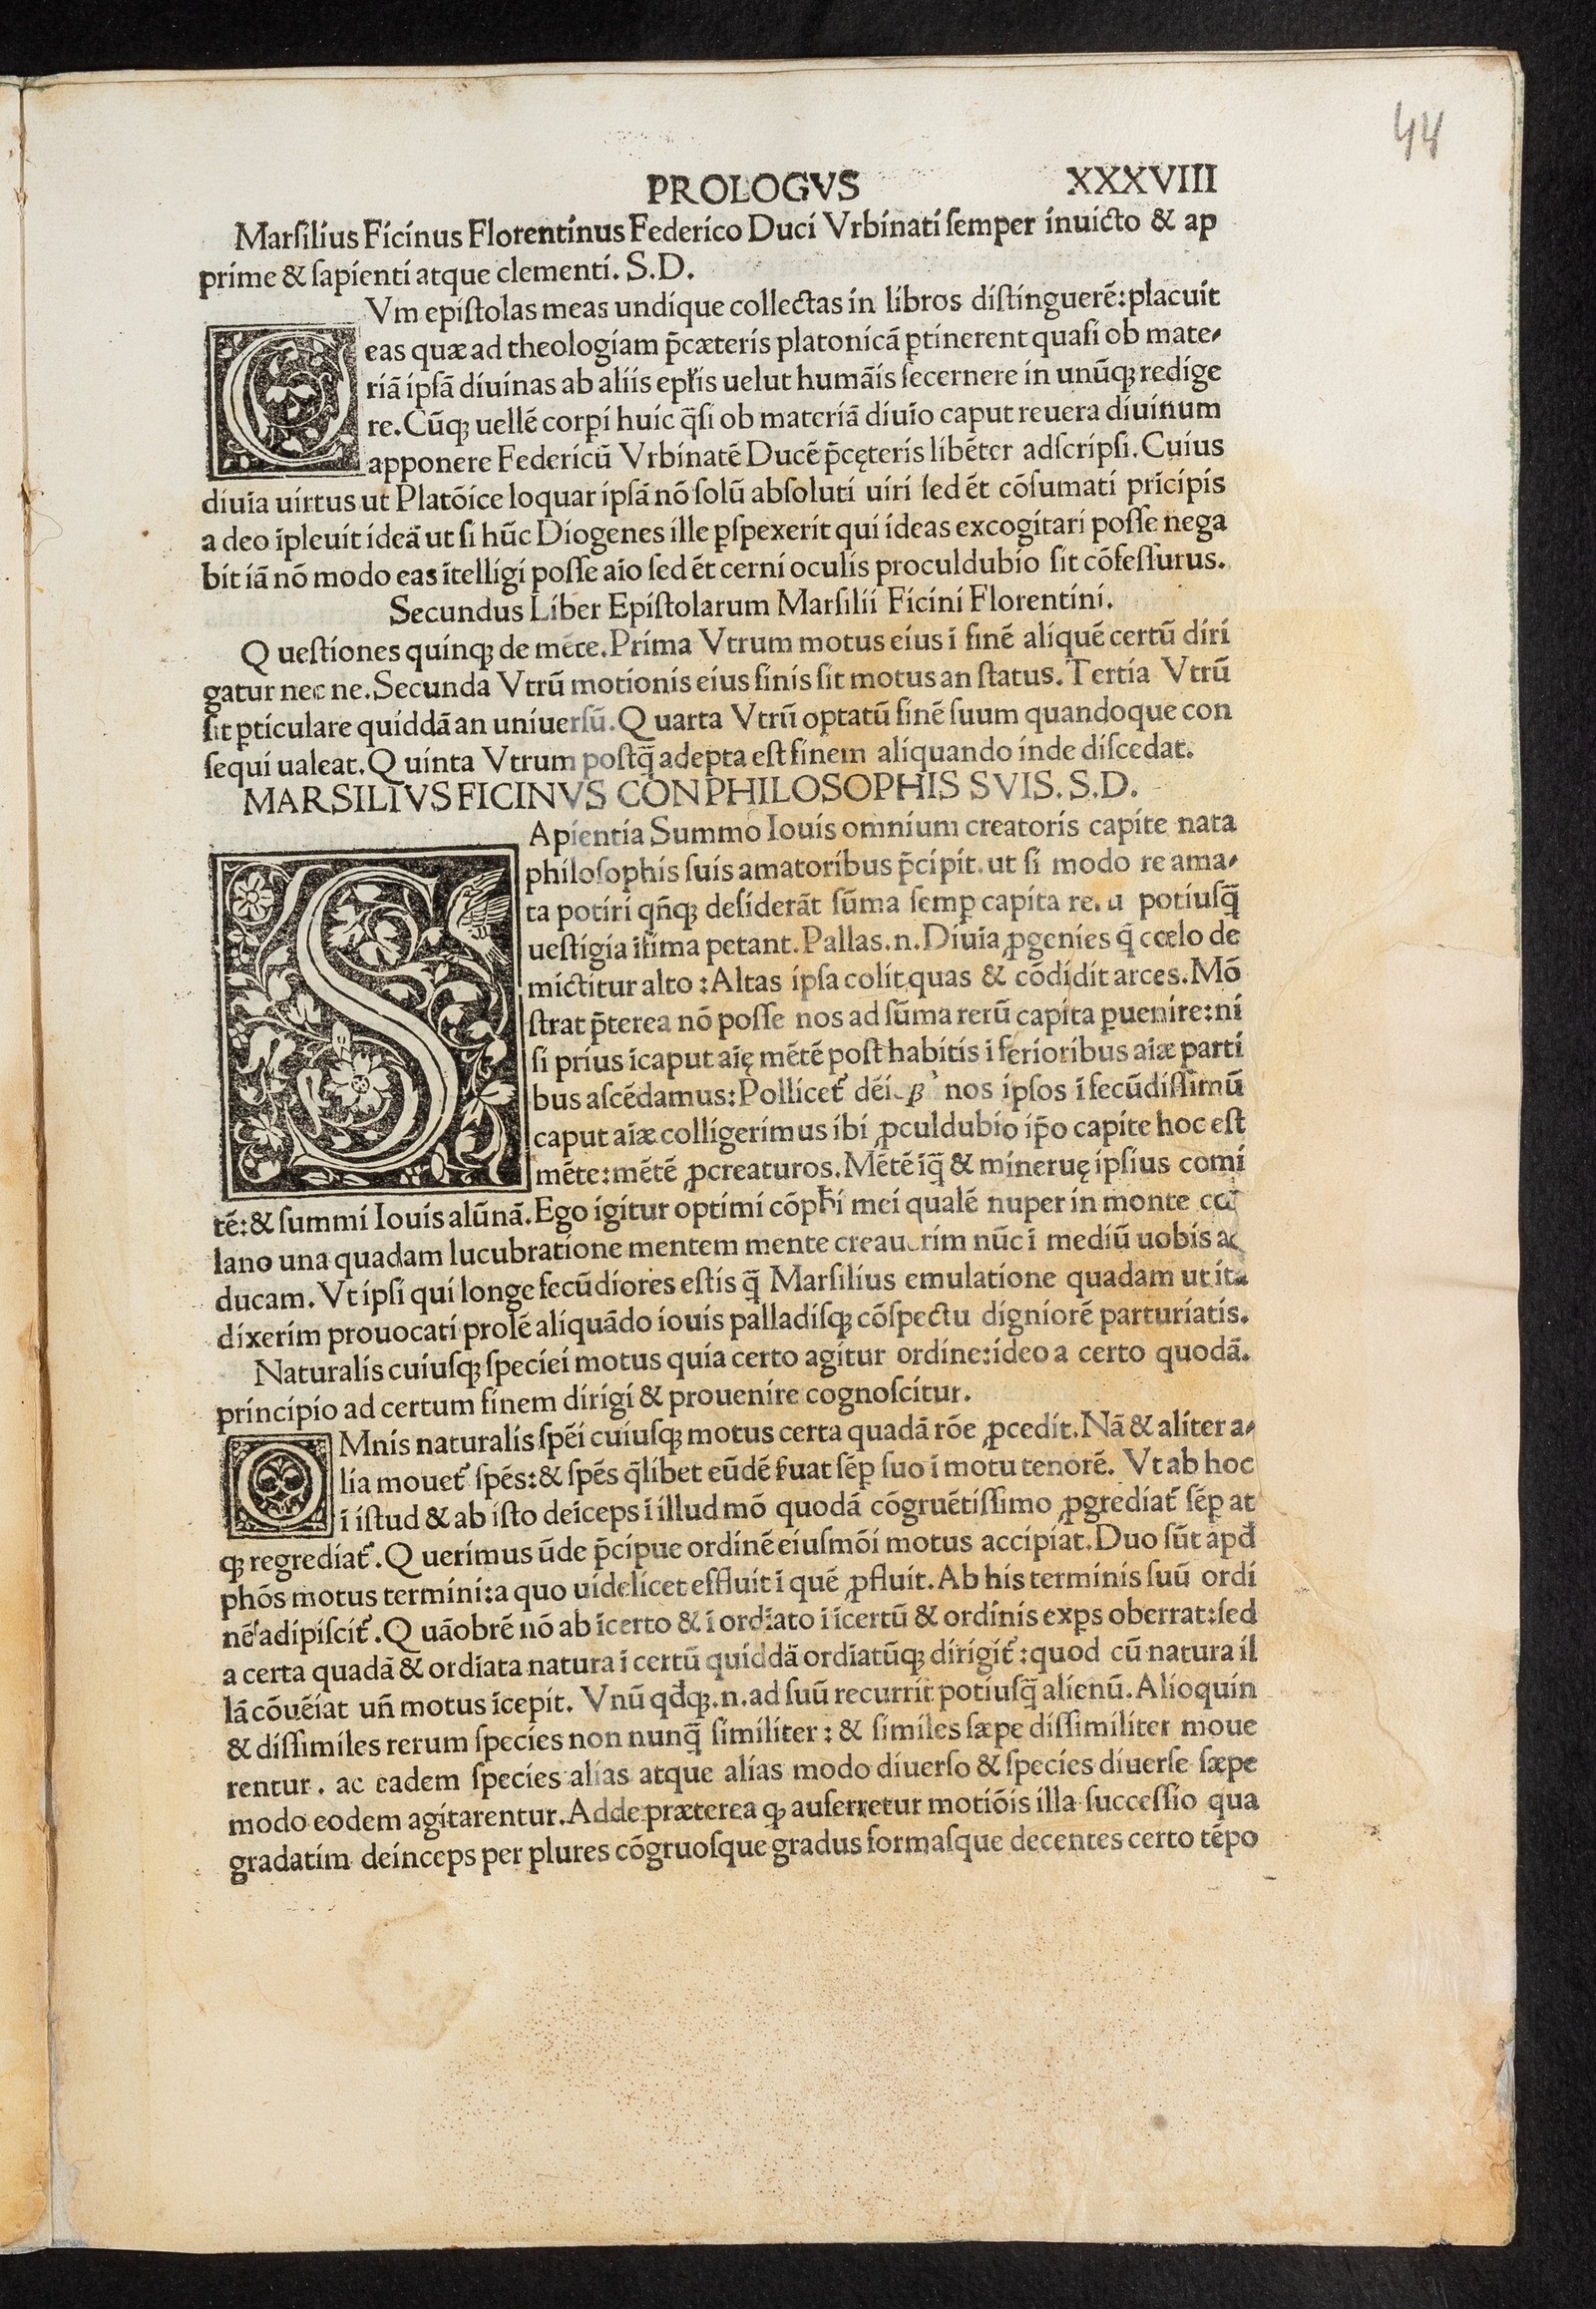 44
PROLOGVS XXXVIII
Marſilius Ficinus Florentinus Federico Duci Vrbinati ſemper inuicto & ap
prime & ſapienti atque clementi. S.D.
CVm epiſtolas meas undique collectas in libros diſtinguerē: placuit
eas quæ ad theologiam p̄cæteris platonicā ꝑtinerent quaſi ob mate⸗
riā ipſā diuinas ab aliis epl̃is uelut humāis ſecernere in unūqꝫ redige
re. Cūqꝫ uellē corꝑi huic q̄ſi ob materiā diuīo caput reuera diuinum
apponere Federicū Vrbinatē Ducē p̄cęteris libēter adſcripſi. Cuius
diuīa uirtus ut Platōice loquar ipſā nō ſolū abſoluti uiri ſed ēt cōſumati prīcipis
a deo īpleuit ideā ut ſi hūc Diogenes ille ꝑſpexerit qui ideas excogitari poſſe nega
bit iā nō modo eas ītelligi poſſe aīo ſed ēt cerni oculis proculdubio ſit cōfeſſurus.
Secundus Liber Epiſtolarum Marſilii Ficini Florentini.
Queſtiones quinqꝫ de mēte. Prima Vtrum motus eius ī finē aliquē certū diri
gatur nec ne. Secunda Vtrū motionis eius finis ſit motus an ſtatus. Tertia Vtrū
ſit ꝑticulare quiddā an uniuerſū. Quarta Vtrū optatū finē ſuum quandoque con
ſequi ualeat. Quinta Vtrum poſtq̄ adepta eſt finem aliquando inde diſcedat.
MARSILIVS FICINVS CONPHILOSOPHIS SVIS. S.D.
SApientia Summo Iouis omnium creatoris capite nata
philoſophis ſuis amatoribus p̄cipit. ut ſi modo re ama⸗
ta potiri qñqꝫ deſiderāt ſūma ſemꝑ capita potiuſq̄
ueſtigia īfima petant. Pallas.n. Diuīa ꝓgenies q̄ cœlo de
mictitur alto: Altas ipſa colit quas & cōdidit arces. Mō
ſtrat p̄terea nō poſſe nos ad ſūma rerū capita ꝑuenire: ni
ſi prius īcaput aīę mētē poſt habitis īferioribus aīæ parti
bus aſcēdamus: Pollicet᷑ nos ipſos ī fecūdiſſimū
caput aīæ colligerimus ibi ꝓculdubio ip̄o capite hoc eſt
mēte: mētē ꝓcreaturos. Mētē īq̄ & mineruę ipſius comi
tē: & ſummi Iouis alūnā. Ego igitur optimi cōph̄i mei qualē nuper in monte
lano una quadam lucubratione mentem mente creauerim nūc ī mediū uobis
ducam. Vt ipſi qui longe fecūdiores eſtis q̄ Marſilius emulatione quadam ut ita
dixerim prouocati prolē aliquādo iouis palladiſqꝫ cōſpectu digniorē parturiatis.
Naturalis cuiuſqꝫ ſpeciei motus quia certo agitur ordine: ideo a certo quodā.
principio ad certum finem dirigi & prouenire cognoſcitur.
OMnis naturalis ſpēi cuiuſqꝫ motus certa quadā rōe ꝓcedit. Nā & aliter a⸗
lia mouet᷑ ſpēs: & ſpēs q̄libet eūdē ſ̃uat ſēꝑ ſuo ī motu tenorē. Vt ab hoc
ī iſtud & ab iſto deīceps ī illud mō quodā cōgruētiſſimo ꝓgrediat᷑ ſēꝑ at
qꝫ regrediat᷑. Querimus ūde p̄cipue ordinē eiuſmōi motus accipiat. Duo ſūt apđ
phōs motus termini: a quo uidelicet effluit ī quē ꝓfluit. Ab his terminis ſuū ordi
nē adipiſcit᷑. Quāobrē nō ab īcerto & ī ordīato ī īcertū & ordinis exꝑs oberrat: ſed
a certa quadā & ordīata natura ī certū quiddā ordīatūqꝫ dirigit᷑: quod cū natura il
lā cōuēiat uñ motus īcepit. Vnū qđqꝫ.n. ad ſuū recurrit potiuſq̄ alienū. Alioquin
& diſſimiles rerum ſpecies non nunq̄ ſimiliter: & ſimiles ſæpe diſſimiliter moue
rentur. ac eadem ſpecies alias atque alias modo diuerſo & ſpecies diuerſe ſæpe
modo eodem agitarentur. Adde præterea ꝙ auferretur motiōis illa ſucceſſio qua
gradatim deinceps per plures cōgruoſque gradus formaſque decentes certo tēpo